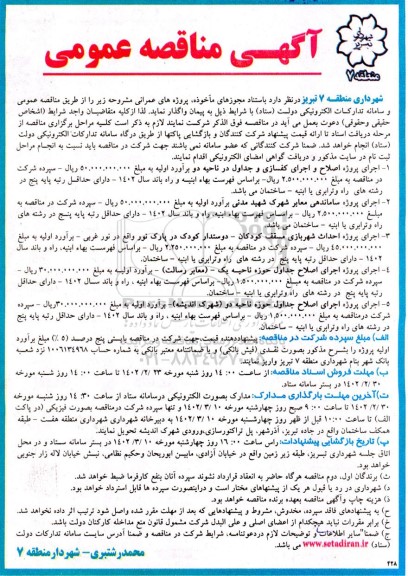 شهرداری
تبریز
منطقه ۷
آگهـی مناقصه عمومی
شهرداری منطقـه ۷ تبریز درنظر دارد باستناد مجوزهای مأخوذه، پروژه های عمرانی مشروحه زیر را از طریق مناقصه عمومی
و سامانه تدارکات الکترونیکی دولت (ستاد) با شرایط ذیل به پیمان واگذار نماید. لذا ازکلیه متقاضیان واجد شرایط (اشخاص
حقیقی وحقوقی) دعوت بعمل می آید در مناقصه فوق الذکر شرکت نمایند. لازم به ذکر است کلیه مراحل برگزاری مناقصه از
مرحله دریافت اسناد تا ارائه قیمت پیشنهاد شرکت کنندگان و بازگشایی پاکتها از طریق درگاه سامانه تدارکات الکترونیکی دولت
(ستاد) انجام خواهد شد. ضمنا شرکت کنندگانی که عضو سامانه نمی باشند جهت شرکت در مناقصه باید نسبت به انجام مراحل
ثبت نام در سایت مذکور و دریافت گواهی امضای الکترونیکی اقدام نمایند.
۱- اجرای پروژه اصلاح و اجرای کفسازی و جداول در ناحیه دو برآورد اولیه به مبلغ ۵۰.۰۰۰.۰۰۰.۰۰۰ ریال - سپرده شرکت
در مناقصه به مبلغ ۲.۵۰۰.۰۰۰.۰۰۰ ریال- براساس فهرست بهاء ابنیه و راه باند سال ۱۴۰۲ - دارای حداقل رتبه پایه پنج در
رشته های راه وترابری یا ابنیه - ساختمان می باشد.
۲- اجرای پروژه ساماندهی معابر شهرک شهید مدنی برآورد اولیه به مبلغ ۵۰.۰۰۰.۰۰۰.۰۰۰ ریال - سپرده شرکت در مناقصه به
مبلغ ۲.۵۰۰.۰۰۰.۰۰۰ ریال - براساس فهرست بهاء ابنیه، راه و باند سال ۱۴۰۲ - دارای حداقل رتبه پایه پنج در رشته های
راه وترابری یا ابنیه - ساختمان.
۳- اجرای پروژه احداث شهربازی مسقف کودکان - دوستدار کودک در پارک نور واقع در نور غربی - برآورد اولیه به مبلغ
۴۵.۰۰۰.۰۰۰.۰۰۰ ریال - سپرده شرکت در مناقصه به مبلغ ۲.۲۵۰.۰۰۰.۰۰۰ ریال - براساس فهرست بهاء ابنیه، راه و باند سال
۱۴۰۲ - دارای حداقل رتبه پایه پنج در رشته های راه وترابری یا ابنیه - ساختمان.
۴- اجرای پروژه اجرای اصلاح جداول حوزه ناحیه یک - (معابر رسالت) - برآورد اولیه به مبلغ ۳۰.۰۰۰.۰۰۰.۰۰۰ ریال -
سپرده شرکت در مناقصه به مبلغ ۱.۵۰۰.۰۰۰.۰۰۰ ریال - براساس فهرست بهاء ابنیه، راه و باند سال ۱۴۰۲ - دارای حداقل رتبه
پایه پنج در رشته های راه وترابری یا ابنیه - ساختمان.
۵- اجرای پروژه اجرای اصلاح جداول حوزه ناحیه در (شهرک اندیشه)- برآورد اولیه به مبلغ ۳۰.۰۰۰.۰۰۰.۰۰۰ریال - سپرده
شرکت درمناقصه به مبلغ ۱.۵۰۰.۰۰۰.۰۰۰ ریال - براساس فهرست بهاء ابنیه، راه و باند سال ۱۴۰۲ - دارای حداقل رتبه پایه پنج
در رشته های راه وترابری یا ابنیه - ساختمان.
الف) مبلغ سپرده شرکت در مناقصه: پیشنهاددهنده قیمت جهت شرکت در مناقصه بایستی پنج درصد (۵ ٪) مبلغ برآورد
اولیه پروژه را بشرح مذکور بصورت نقدی (فیش بانکی) و یا ضمانتنامه معتبر بانکی به شماره حساب ۱۰۰۶۱۳۴۹۷۸ نزد شعبه
بانک شهر بنام شهرداری منطقه ۷ تبریز واریز نمایند.
ب) مهلت فروش اسناد مناقصه: از ساعت ۱۴:۰۰ روز شنبه مورخه ۱۴۰۲/۰۲/۲۳ تا ساعت ۱۴:۰۰ روز شنبه مورخه
۱۴۰۲/۰۲/۳۰ در بستر سامانه ستاد.
ت) آخرین مهلت بارگذاری مدارک: مدارک بصورت الکترونیکی درسامانه ستاد از ساعت ۱۴:۳۰ روز شنبه مورخه
۱۴۰۲/۰۲/۳۰ تا ساعت ۹:۰۰ صبح روز چهارشنبه مورخه ۱۴۰۲/۰۳/۱۰ و تنها سپرده شرکت درمناقصه بصورت فیزیکی (در پاکت
الف) تا ساعت ۱۰:۰۰ قبل از ظهر روز چهارشنبه مورخه ۱۴۰۲/۰۳/۱۰ به دبیرخانه شهرداری منطقه هفت - طبقه
همکف ساختمان واقع در جاده تبریز، آذرشهر، پل تراکتورسازی،ورودی شهرک اندیشه تحویل نمایند.
پ) تاریخ بازگشایی پیشنهادات: راس ساعت ۱۶:۰۰ روز چهارشنبه مورخه ۱۴۰۲/۰۳/۱۰ در بستر سامانه ستاد و در محل
اتاق جلسه شهرداری تبریز، طبقه زیر زمین واقع در خیابان آزادی، مابین ابوریحان وحکیم نظامی، نبش خیابان لاله زار جنوبی
خواهد بود.
ث) برندگان اول، دوم مناقصه هرگاه حاضر به انعقاد قرارداد نشوند سپرده آنان بنفع کارفرما ضبط خواهد شد.
د) شهرداری در رد یا قبول هر یک از پیشنهادهای مختار است و دراینصورت سپرده ها قابل استرداد خواهد بود.
ذ) هزینه چاپ وآگهی مناقصه بعهده برنده مناقصه خواهد بود.
ح) به پیشنهادهای فاقد سپرده، مخدوش، مشروط و پیشنهادهایی که بعد از مهلت مقرر شده واصل شود ترتیب اثر داده نخواهد شد.
خ) برابر مقررات نباید هیچکدام از اعضای اصلی و علی البدل شرکت مشمول قانون منع مداخله کارکنان دولت باشد.
ج) ضمنا"سایر اطلاعات و توضیحات لازم دردعوتنامه، شرایط شرکت در مناقصه و ضمنا آدرس سایت سامانه تدارکات دولت
(ستاد) www.setadiran.ir می باشد.
محمدرشتبری- شهردارمنطقه ۷
۲۲۸